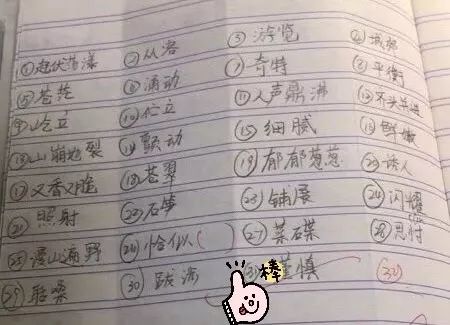 ①起伏荡漾 ②从容 ③游览 ④城郭
⑤苍茫 ⑥涌动 ⑦奇特 ⑧平衡
⑨屹立 ⑩伫立 ⑪人声鼎沸 ⑫齐头并进
⑬山崩地裂 ⑭颤动 ⑮细腻 ⑯鲜嫩
⑰又香又脆 ⑱苍翠 ⑲郁郁葱葱 ⑳诱人
㉑照射 ㉒石笋 ㉓铺展 ㉔闪耀
㉕漫山遍野 ㉖恰似( ) ㉗菜碟 ㉘思忖
㉙聒噪 ㉚跋涉 棒 谨慎 ㉜